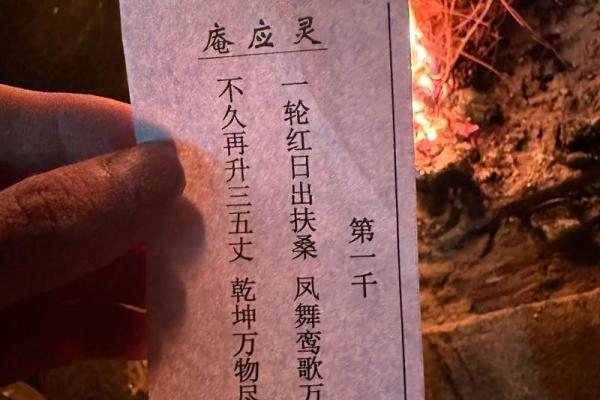 灵应庵
第一千
一轮红日出扶桑 凤舞鸾歌万
不久再升三五丈 乾坤万物